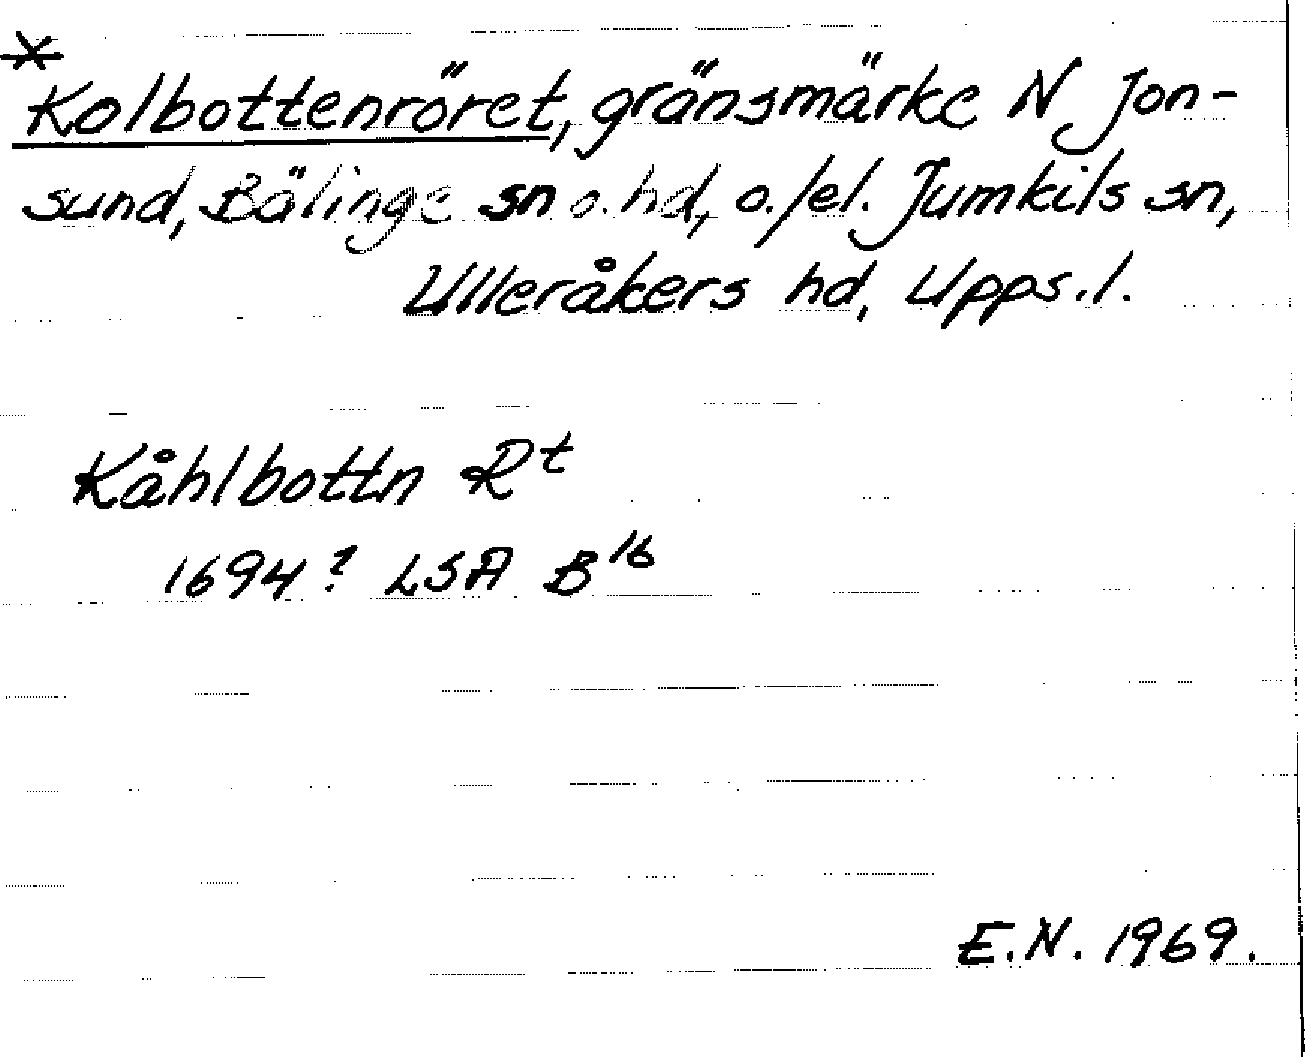 *
Kolbottenröret, gränsmärke N Jon-
sund, Bälinge sn o. hd, o./el. Jumkils sn,
Ulleråkers hd, Upps.l.
Kåhlbottn Rt
1694? LSA B16
E.N. 1969.